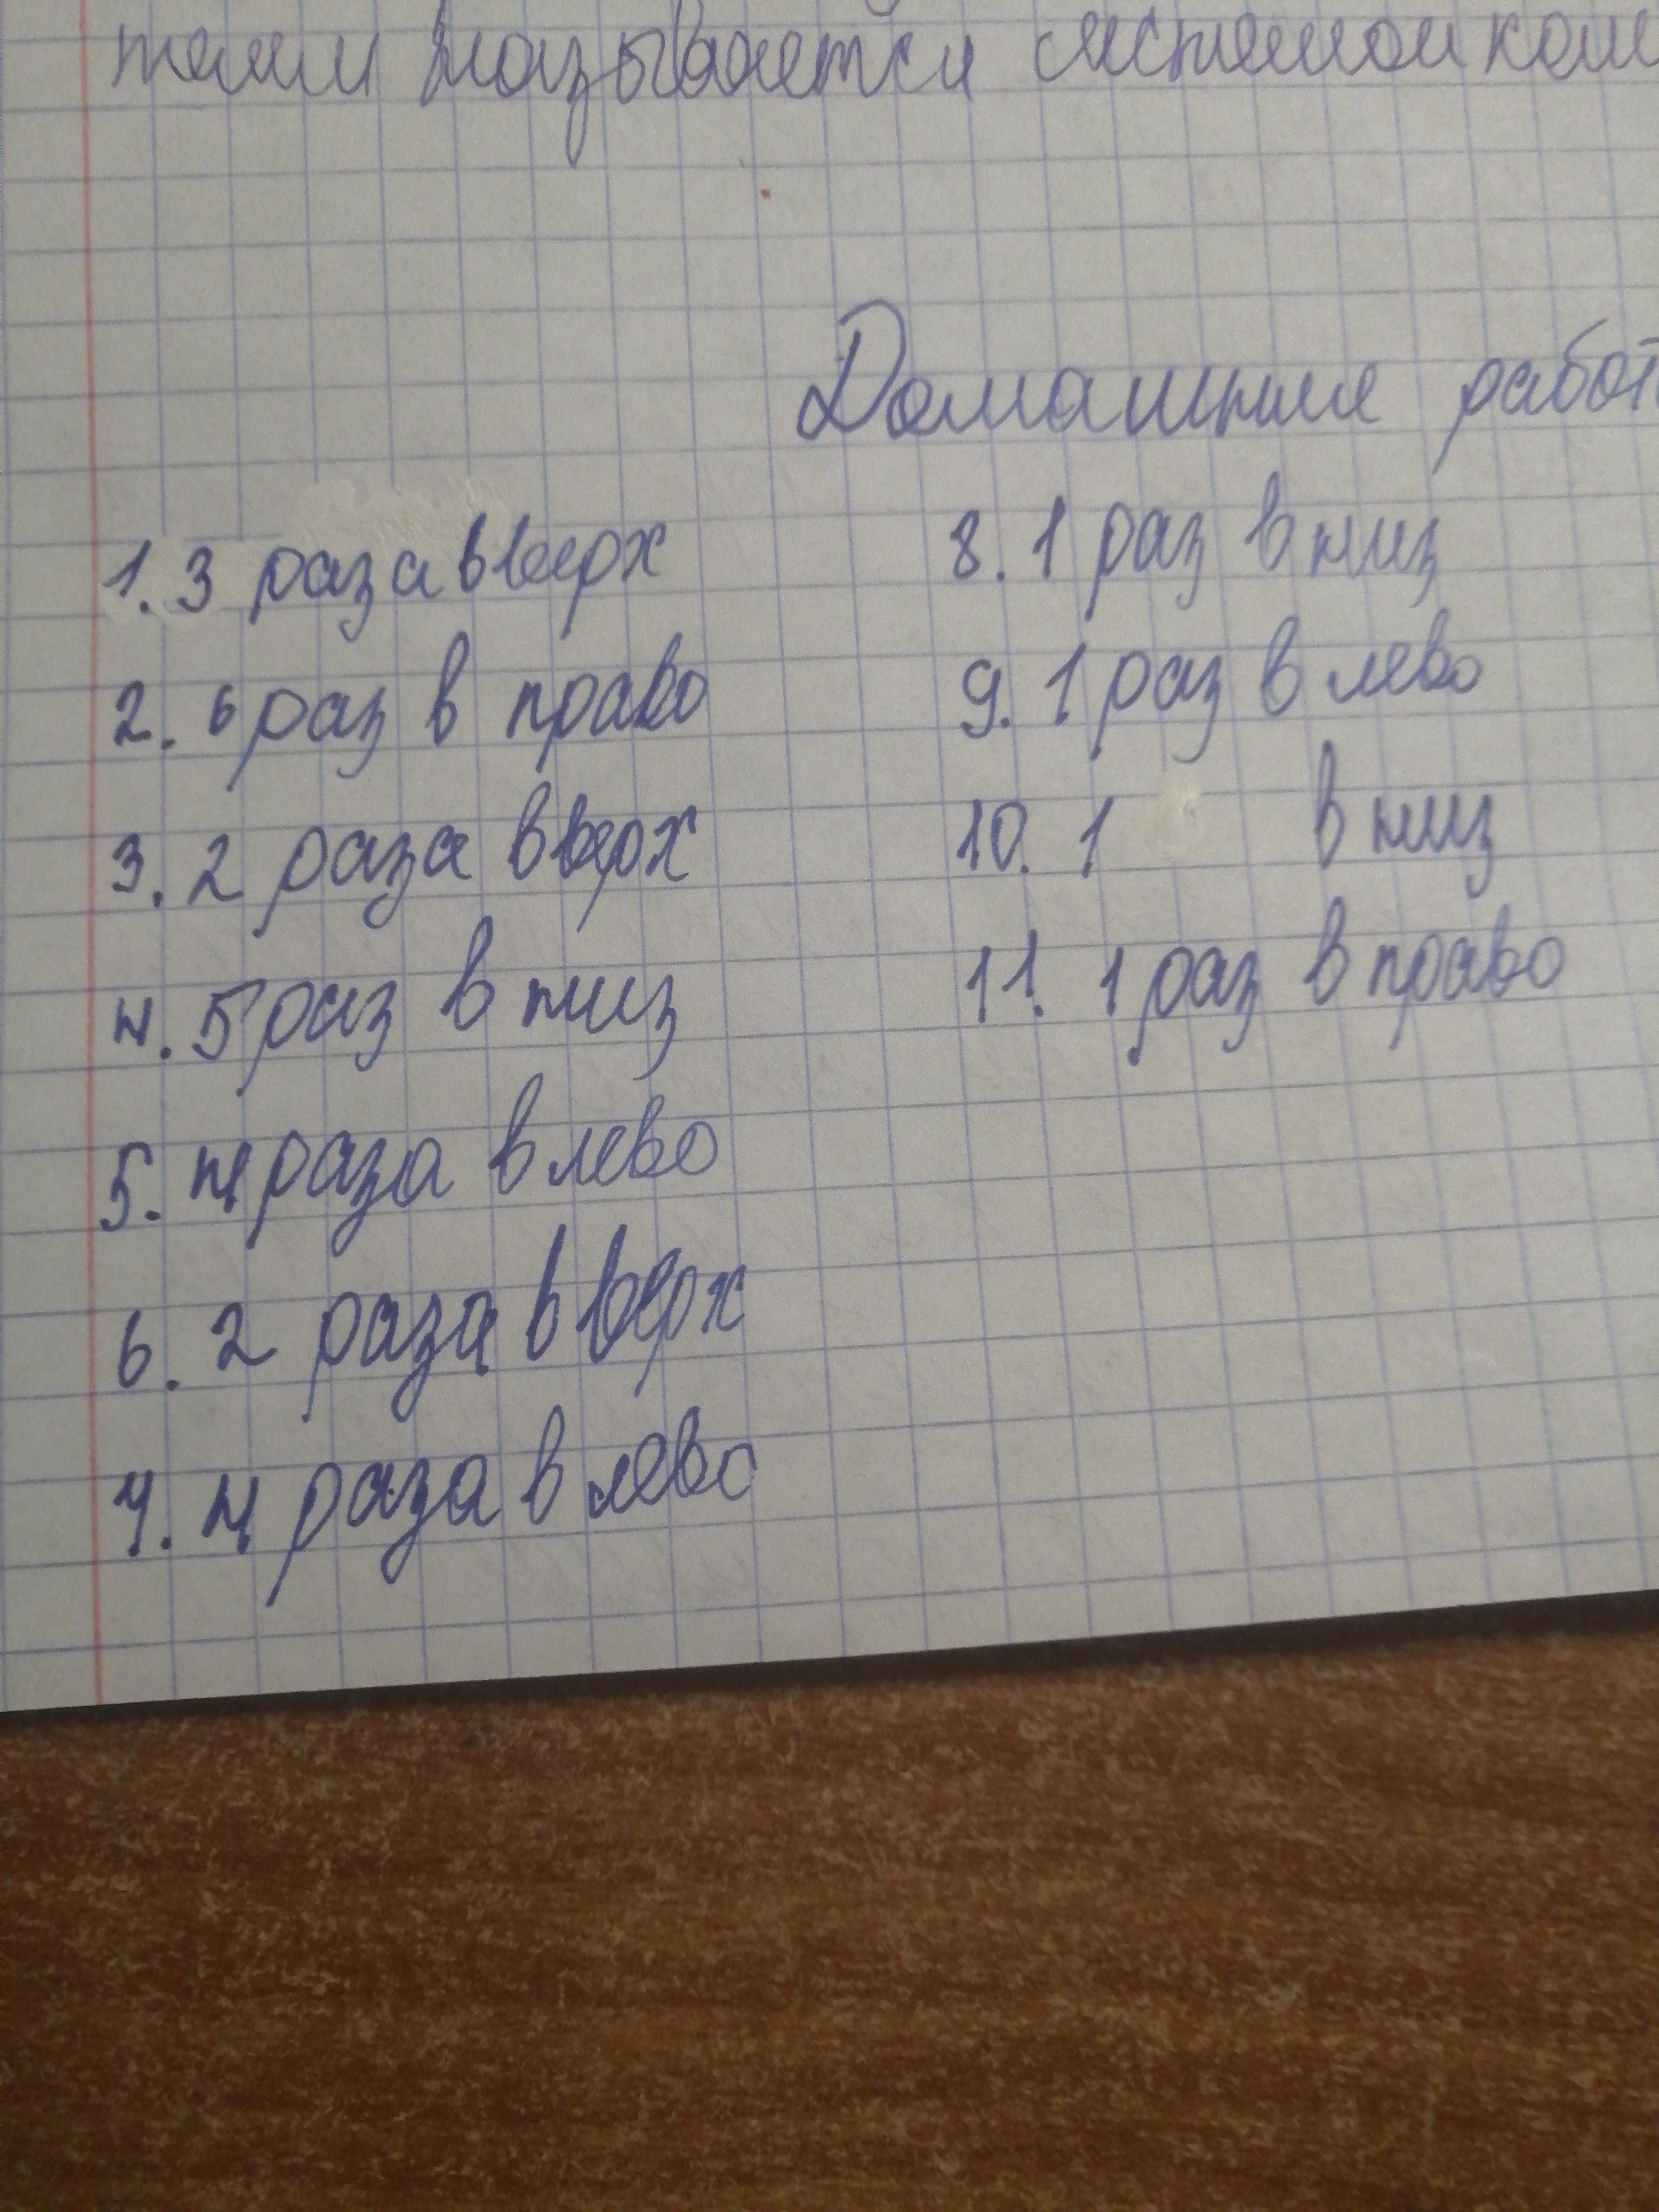 называется системой ком
Домашняя работ
1. 3 раза вверх
2. 6 раз в право
3. 2 раза вверх
4. 5 раз в низ
5. 4 раза в лево
6. 2 раза в верх
7. 4 раза в лево
8. 1 раз в низ
9. 1 раз в лево
10. 1 в низ
11. 1 раз в право